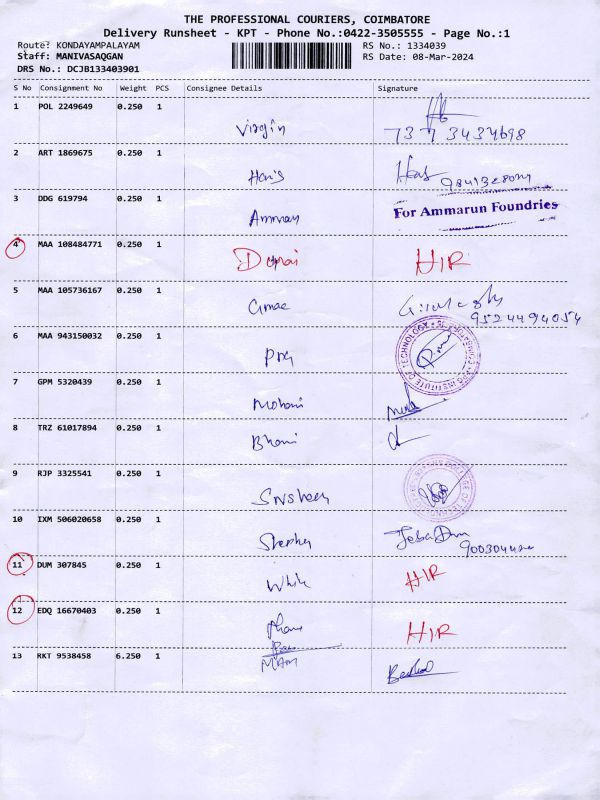 THE PROFESSIONAL COURIERS, COIMBATORE
Delivery Runsheet - KPT - Phone No.:0422-3505555 - Page No.:1
Route: KONDAYAMPALAYAM RS No.: 1334039
Staff: MANIVASAQGAN RS Date: 08-Mar-2024
DRS No.: DCJB133403901
S No Consignment No Weight PCS Consignee Details Signature
1 POL 2249649 0.250 1
Virgin 7373434698
2 ART 1869675 0.250 1
Haris
3 DDG 619794 0.250 1
For Ammarun Foundries
4 MAA 108484771 0.250 1
HIR
5 MAA 105736167 0.250 1
9524494054
6 MAA 943150032 0.250 1
INSTITUTE OF TECHNOLOGY
7 GPM 5320439 0.250 1
Mohani
8 TRZ 61017894 0.250 1
Bhani
9 RJP 3325541 0.250 1
10 IXM 506020658 0.250 1
Stephen
11 DUM 307845 0.250 1
HIR
12 EDQ 16670403 0.250 1
HIR
13 RKT 9538458 6.250 1